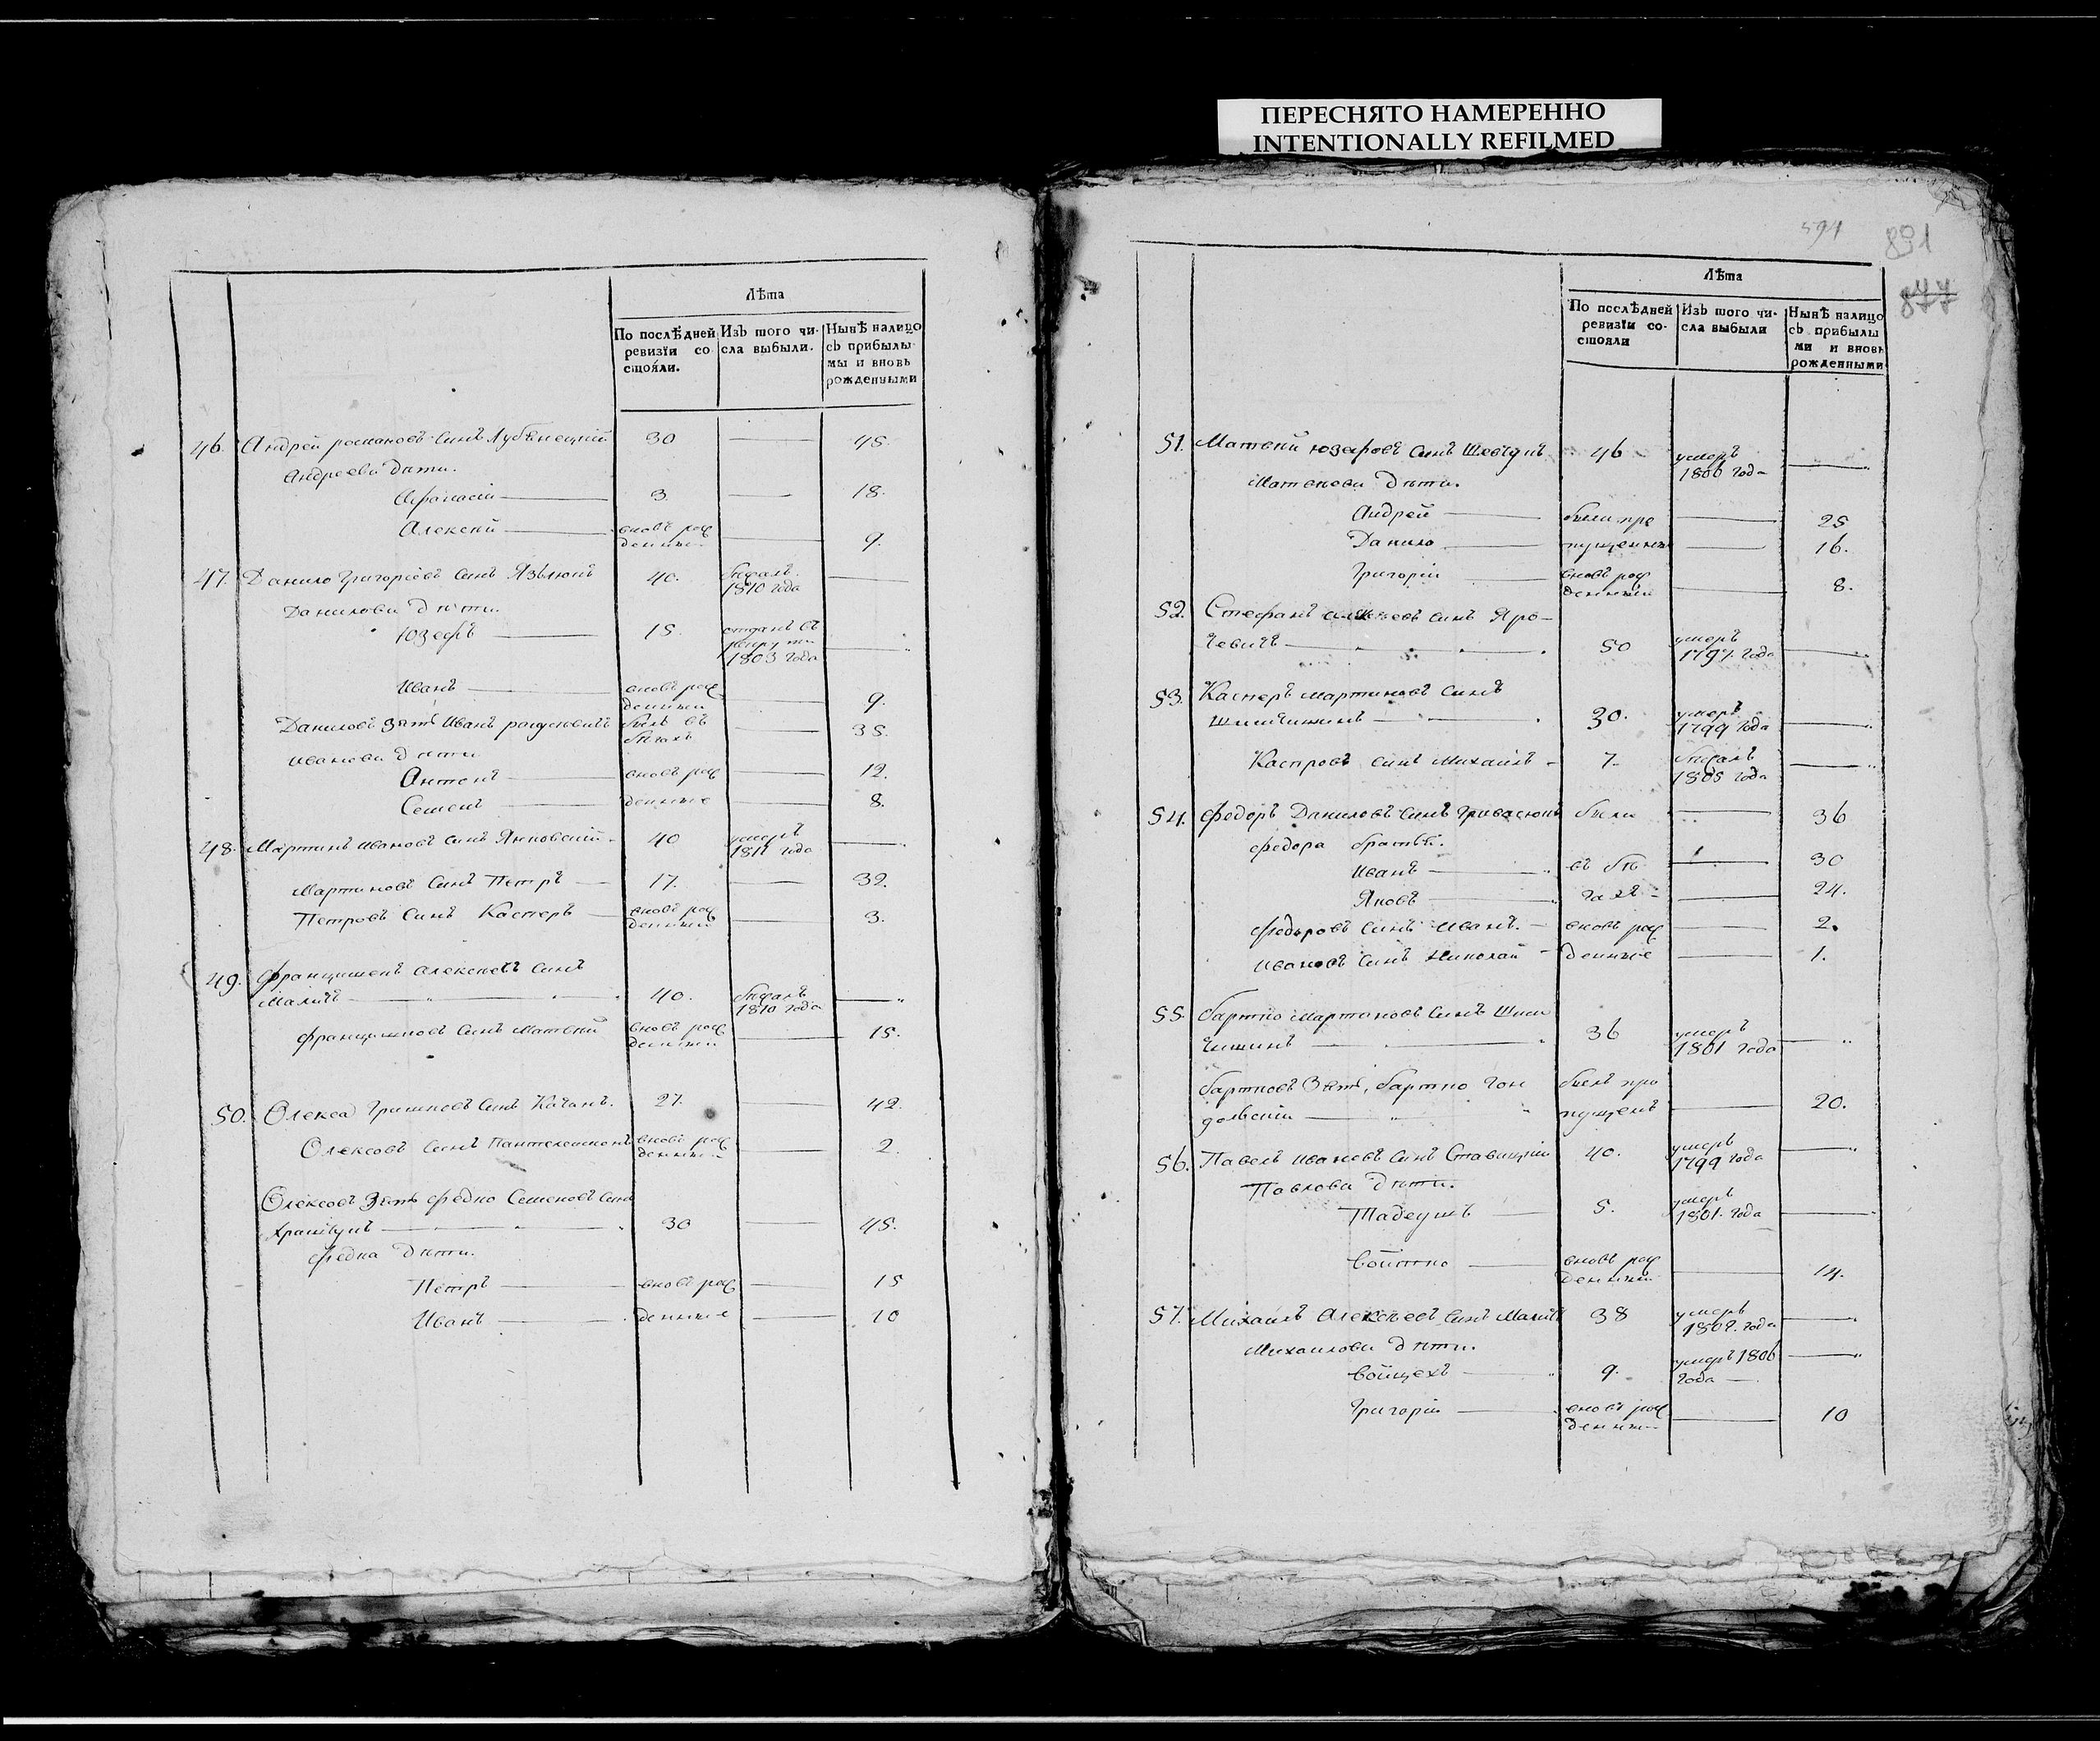 ПЕРЕСНЯТО НАМЕРЕННО
INTENTIONALLY REFILMED
Лѣта
По послѣдней ревизїи состояли.
Изъ того числа выбыли.
Нынѣ налицо съ прибылымы и вновь рожденными
46. Андрей романовъ синъ 30 — 45.
Андрееви дѣти.
Афанасій — 3 — 18.
Алексѣй — вновь рож денные — 9.
47. Данило Григорієвъ синъ 40. бѣжалъ 1810 года —
Данилови дѣти.
Юзефъ — 15. отданъ въ рекруты 1803 года —
Иванъ — вновь рож денный — 9.
Даниловъ зять Иванъ билъ въ бѣгахъ — 35.
иванови дѣти
Антонъ — вновь рож — 12.
Семенъ — денные — 8.
48. Мартинъ ивановъ синъ Янковскій 40 умеръ 1811 года —
Мартиновъ синъ Петръ — 17. — 32.
Петровъ синъ Касперъ — вновь рож денный — 3.
49. Францишекъ алексѣевъ синъ
Маличъ — 40. бѣжалъ 1810 года —
францишковъ синъ Матвѣй вновь рож денный — 15.
50. Олекса Гришковъ синъ Качанъ. 27. — 42.
Олексовъ синъ Пантелемонъ вновь рож денный — 2.
Олексовъ зять федко Семеновъ синъ
— 30 — 45.
Федка дѣти.
Петръ — вновь рож — 15
Иванъ — денные — 10
594
891
877
Лѣта
По послѣдней ревизїи состояли
Изъ того числа выбыли
Нынѣ налицо съ прибылыми и вновь рожденными
51. Матвій юзефовъ синъ Шевчукъ 46 умеръ 1806 года —
Матвѣеви дѣти.
Андрей — били про — 25
Данило — пущенны — 16.
Григорій — вновь рож денный — 8.
52. Стефанъ алексѣевъ синъ Яро-
чевичъ — 50 умеръ 1797. года —
53. Касперъ мартиновъ синъ
— 30. умеръ 1799 года —
Касправъ синъ Михайлъ — 7. бѣжалъ 1805 года —
54. Федоръ Даниловъ синъ били — 36
Федора братья.
Иванъ — въ бѣ — 30
Яковъ — гахъ — 24.
Федоровъ синъ Иванъ. — вновь рож — 2.
ивановъ синъ Николай — денные — 1.
55. бартко Мартиновъ синъ
— 36 умеръ 1801 года —
бартковъ зять, бартко Гон билъ про
— пущенъ — 20.
56. Павелъ ивановъ синъ Ставицкій 40. умеръ 1799 года —
Павлови дѣти.
Тадеушъ — 5. умеръ 1801. года —
войтко — вновь рож денный — 14.
57. Михайлъ Алексѣевъ синъ Маличъ 38 умеръ 1802. года —
Михайлови дѣти.
войцехъ — 9. умеръ 1806 года —
Григорій — вновь рож денный — 10